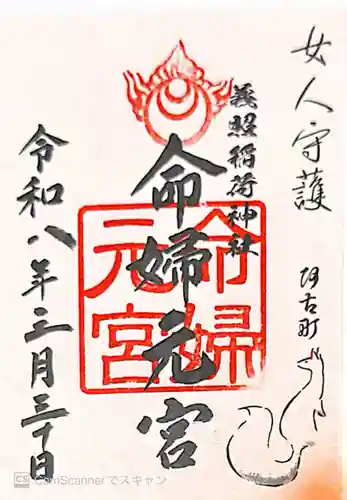 女人守護
阿古町
義照稲荷神社
命婦元宮
命婦元宮
令和八年三月三十日
CS CamScannerでスキャン